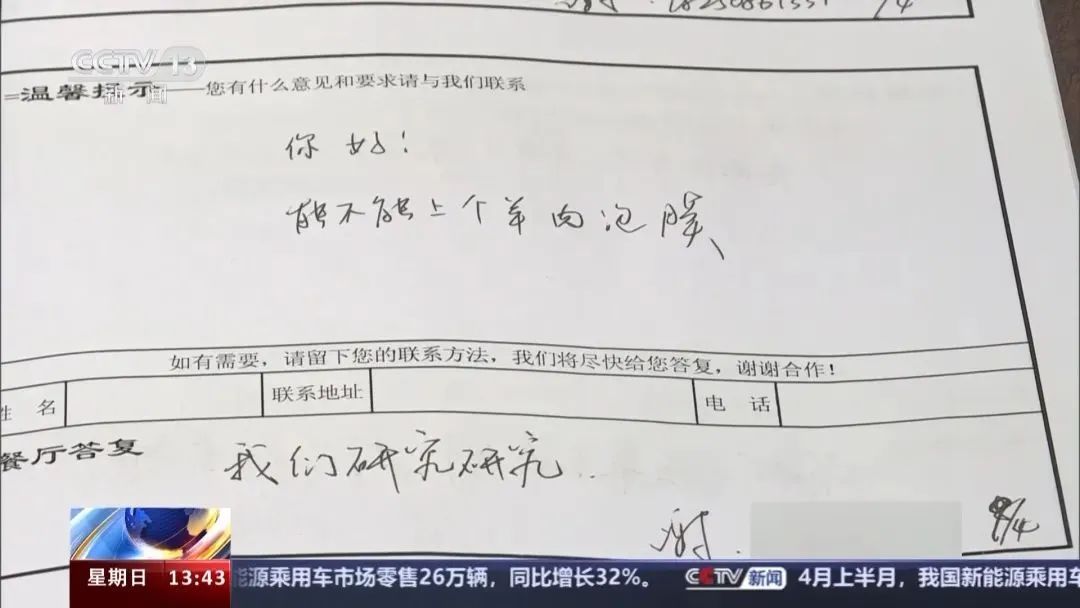 CCTV 13
新闻
温馨提示——您有什么意见和要求请与我们联系
你好!
能不能上个羊肉泡膜
如有需要,请留下您的联系方法,我们将尽快给您答复,谢谢合作!
姓 名
联系地址
电 话
餐厅答复
我们研究研究..
谢.
9/4
星期日 13:43
能源乘用车市场零售26万辆,同比增长32%。
CCTV 新闻
4月上半月,我国新能源乘用车